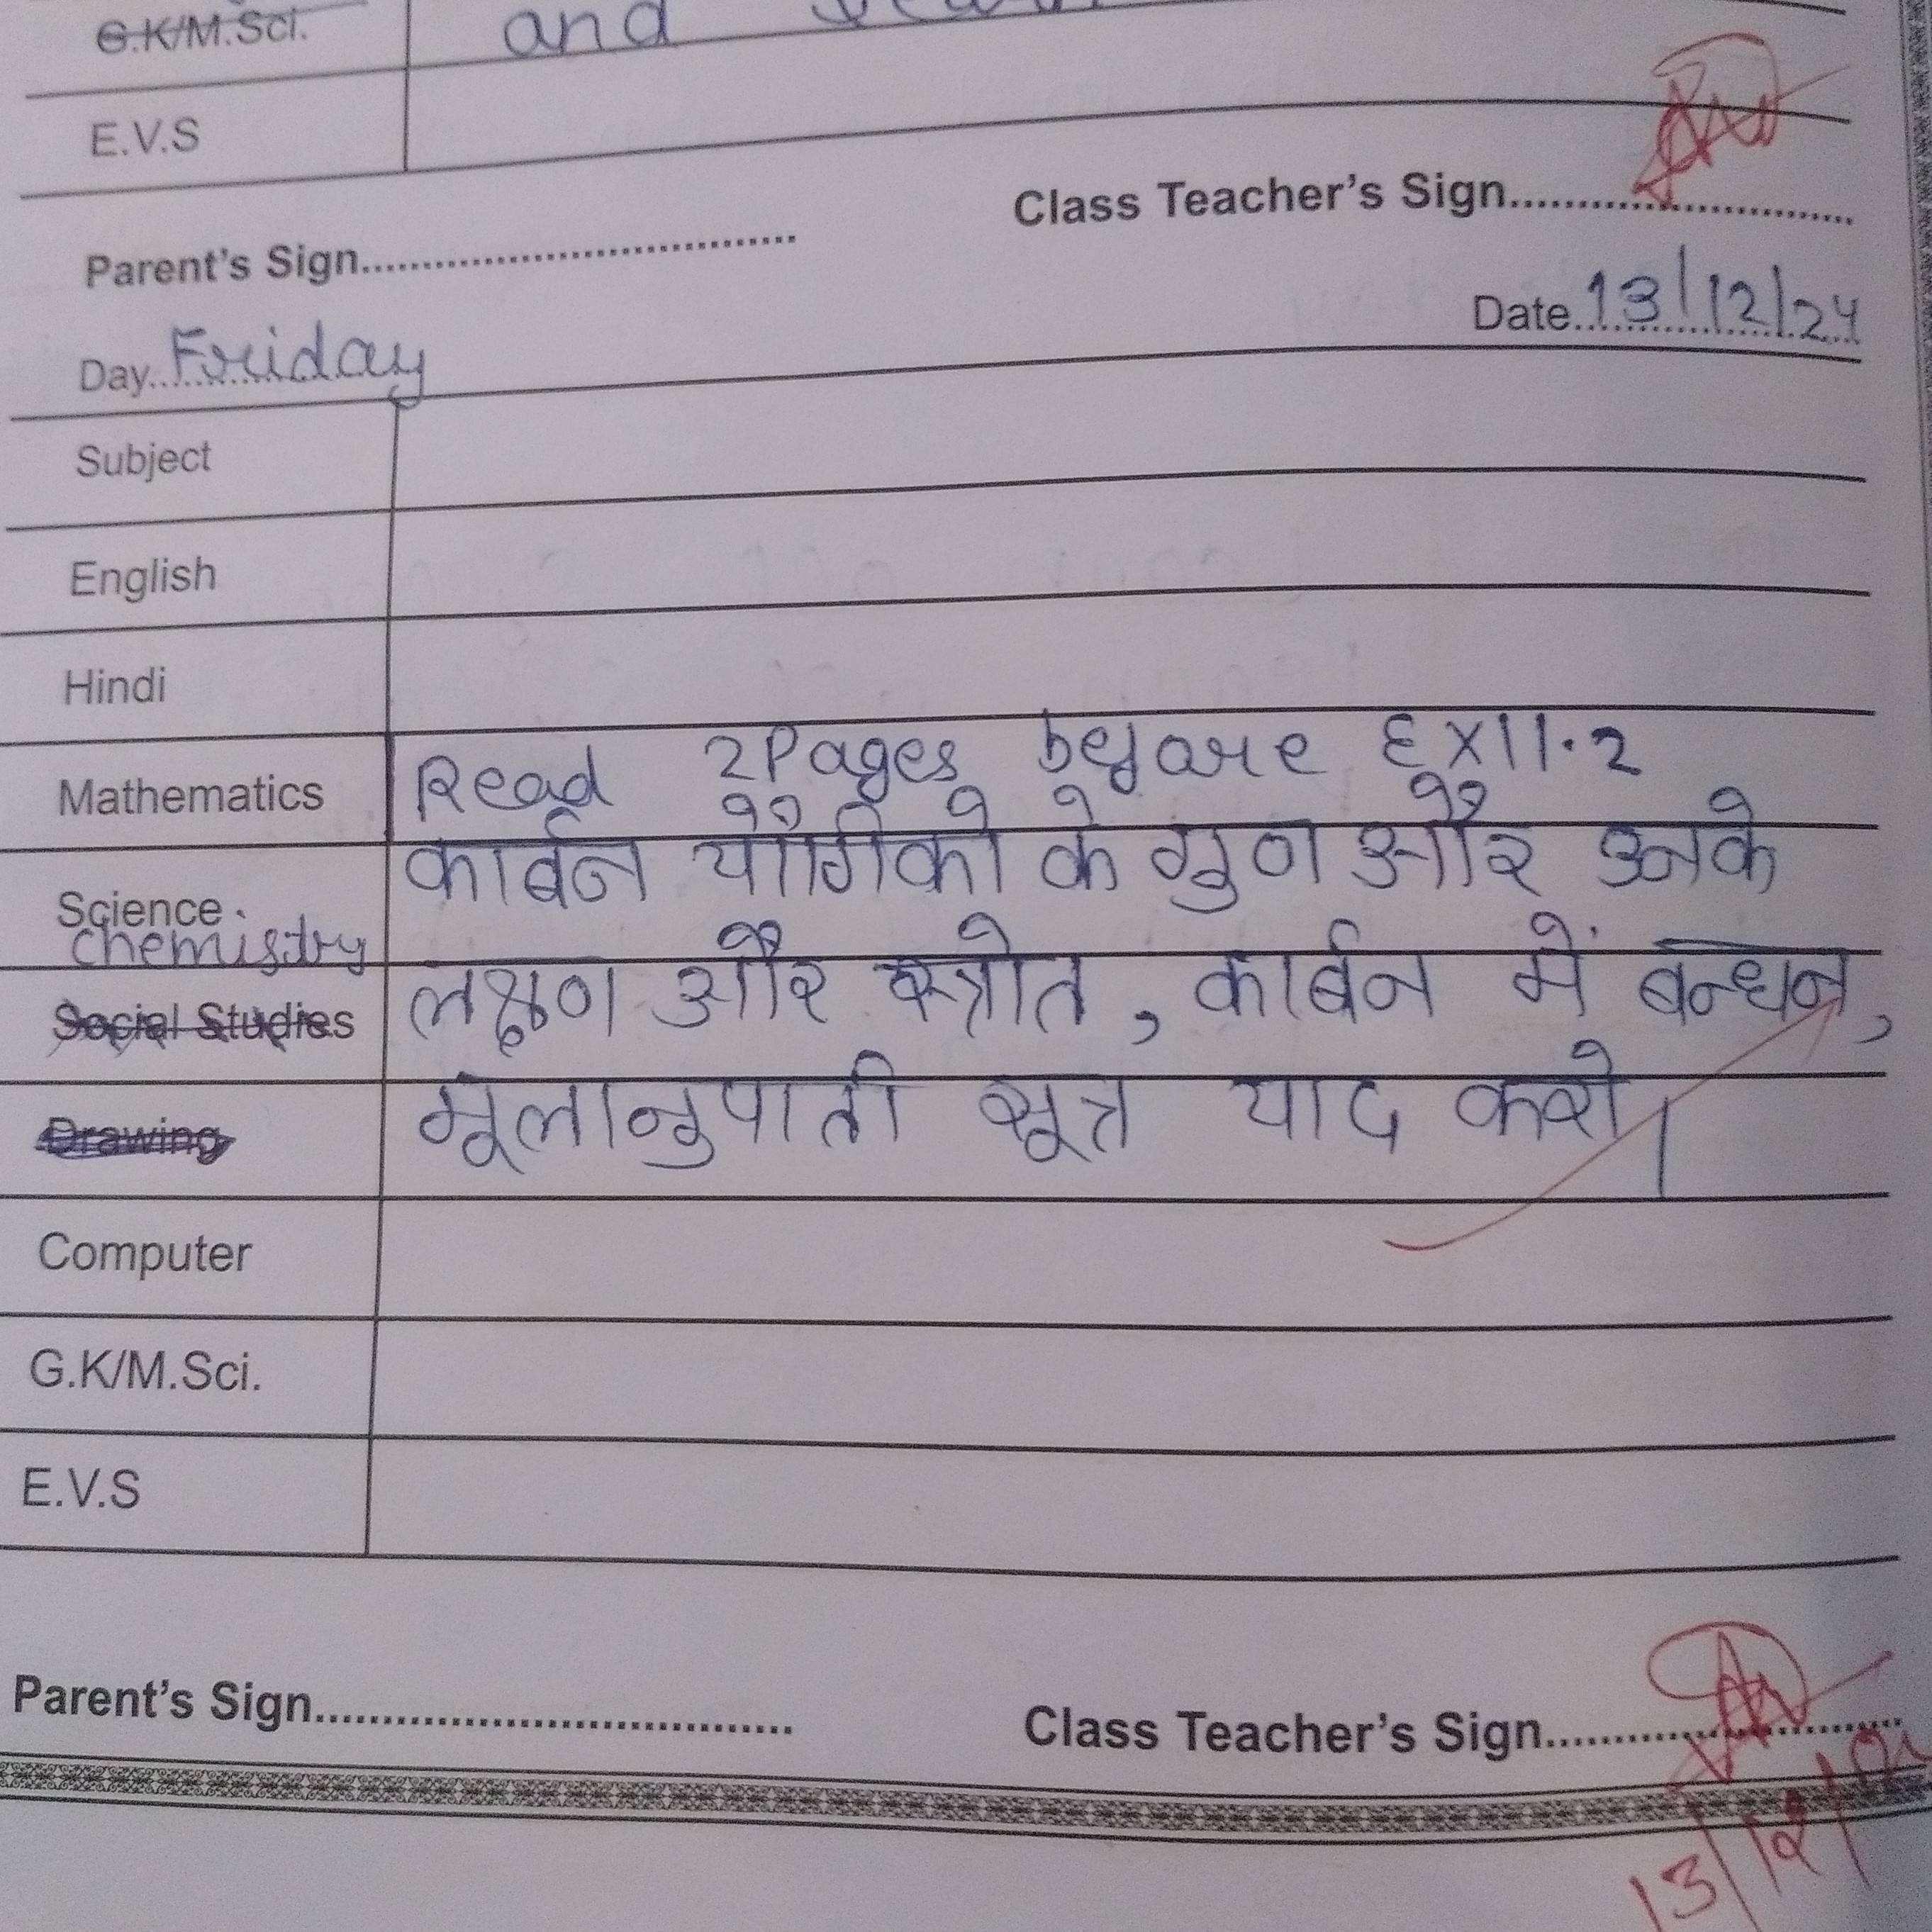 G.K/M.Sci. and
E.V.S
Class Teacher's Sign
Parent's Sign
Date 13/12/24
Day Friday
Subject
English
Hindi
Mathematics Read 2Pages before Ex11.2
Science कार्बन यौगिको के गुण और उनके
chemistry
Social Studies लक्षण और स्त्रोत, कार्बन में बन्धन,
Drawing मूलानुपाती सूत्र याद करो।
Computer
G.K/M.Sci.
E.V.S
Parent's Sign
Class Teacher's Sign
13/12/